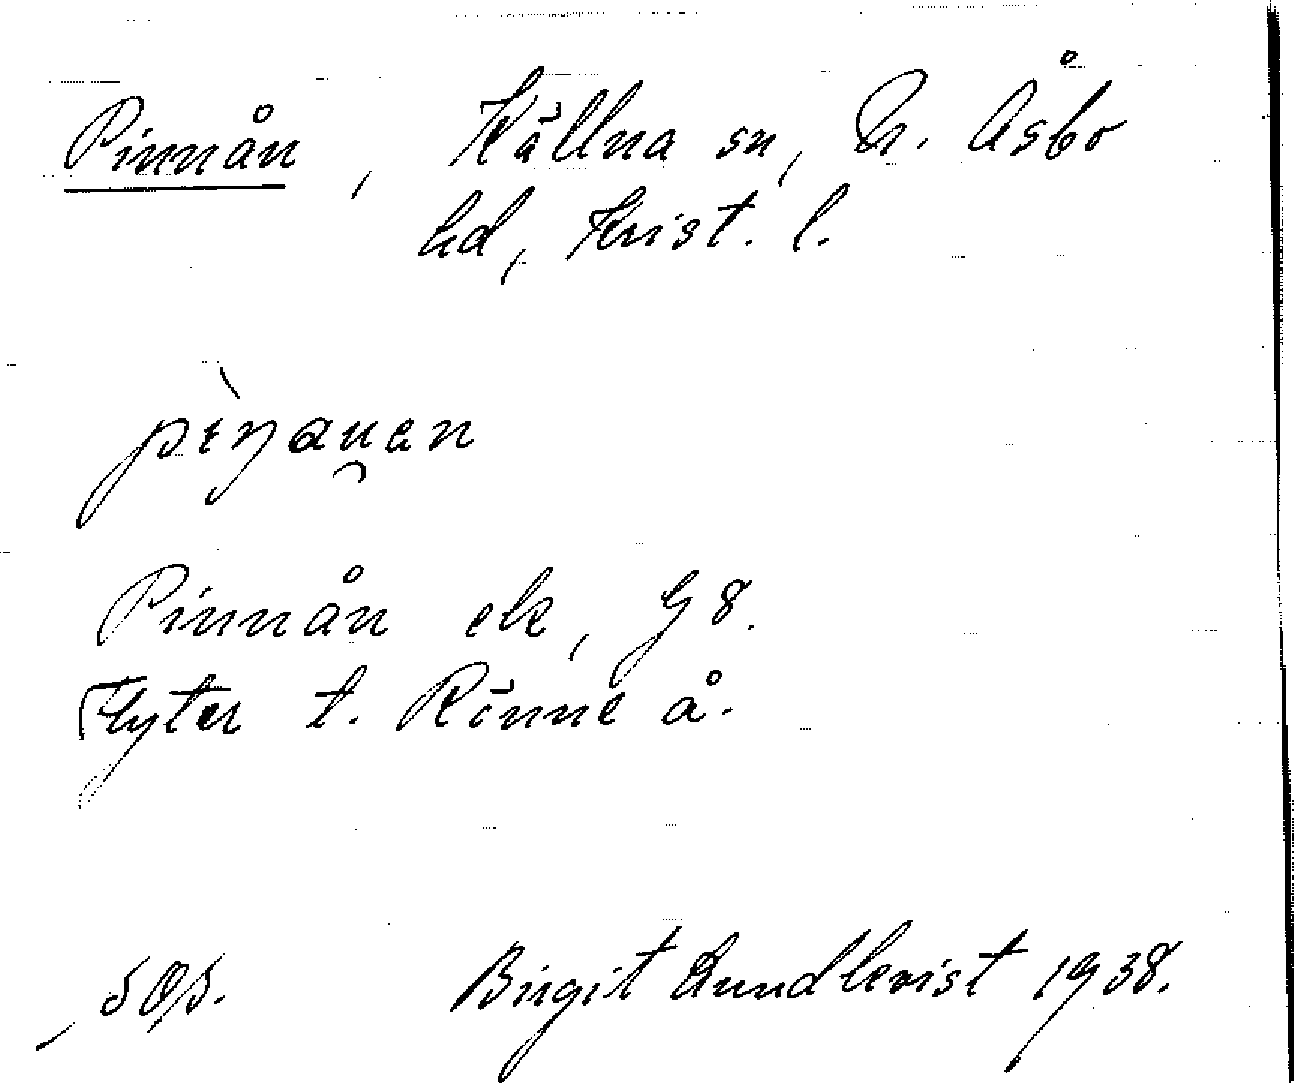 Pinnån, Källna sn, N. Åsbo
hd, Krist. l.
Pinnån ek, G8.
Flyter t. Rönne å.
Birgit Lundkvist 1938.